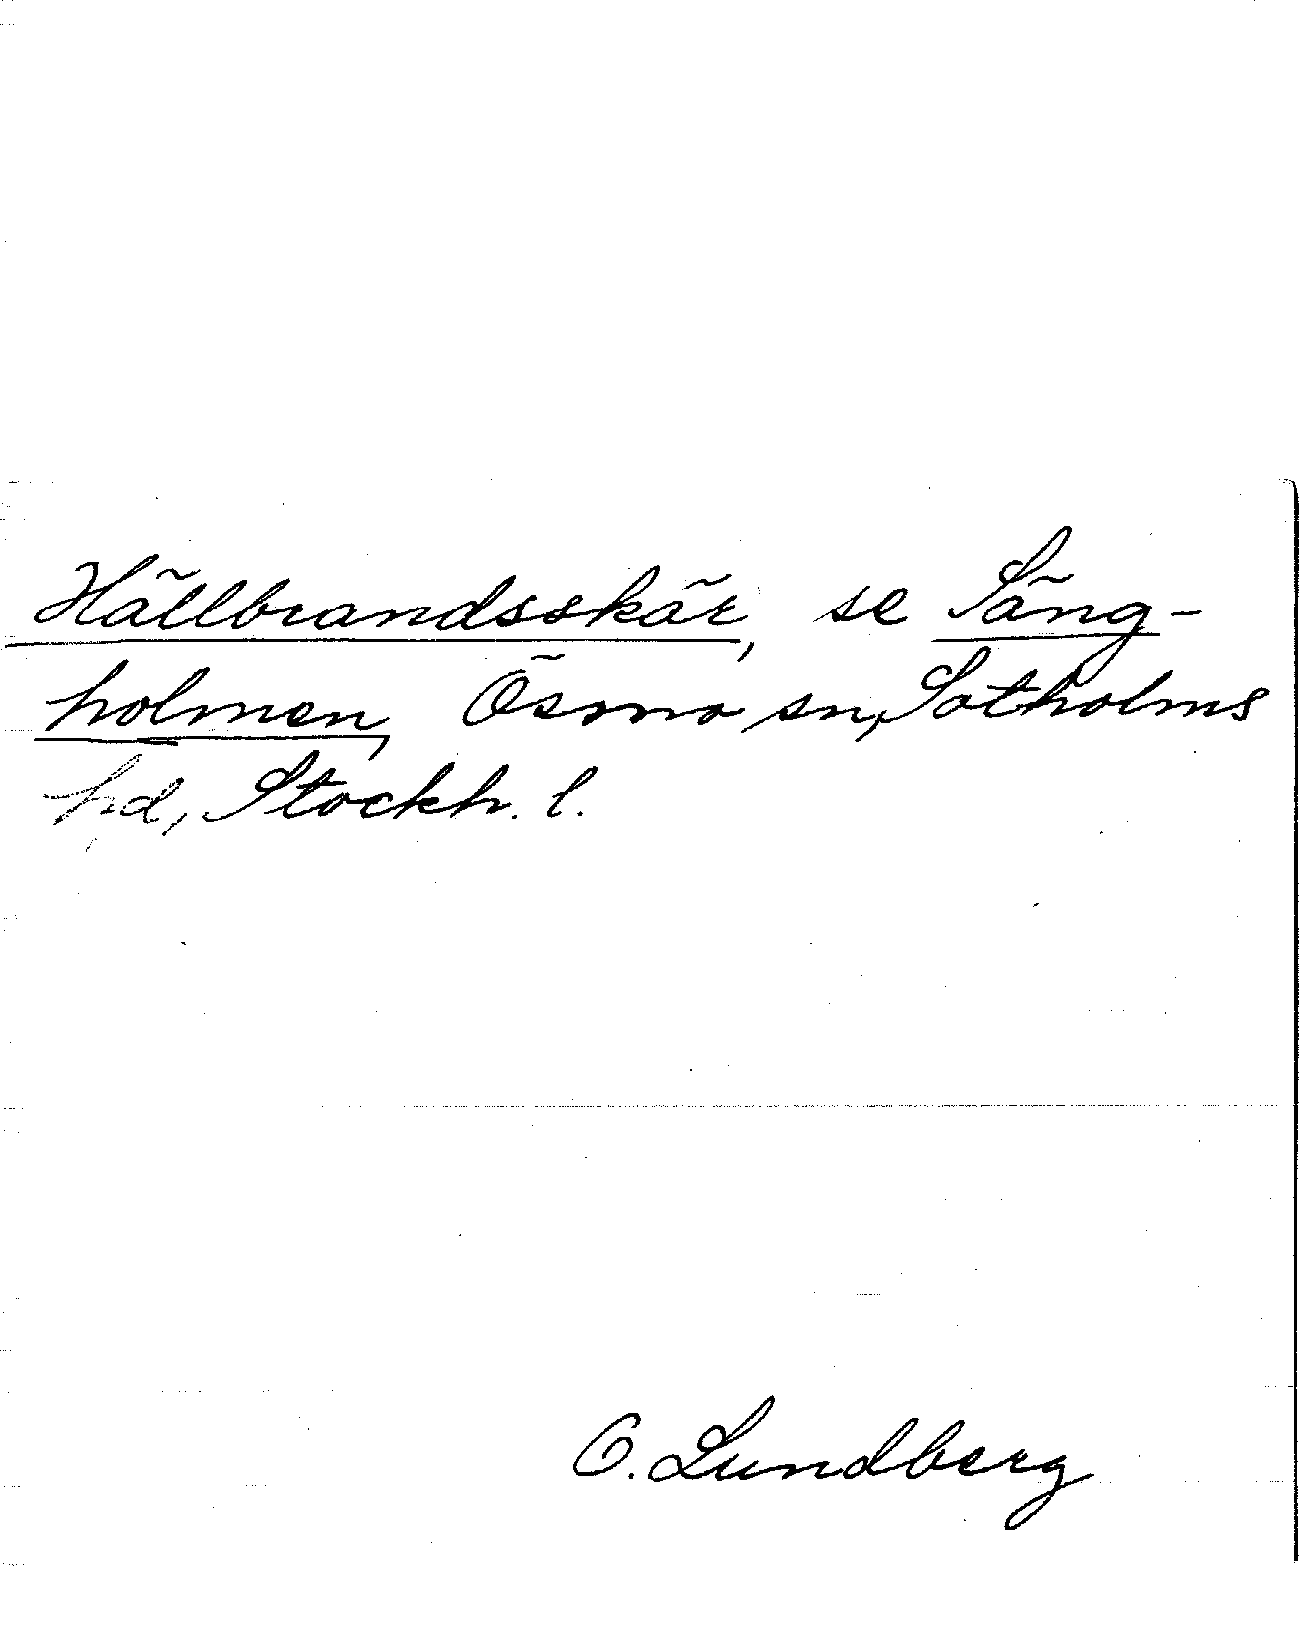 Hällbrandsskär, se Säng-
holmen, Ösmo sn, Sotholms
hd, Stockh. l.
O. Lundberg